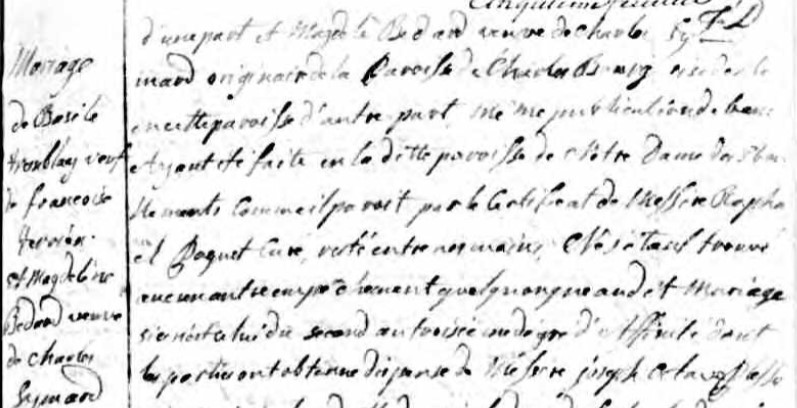 Mariage
de Basile
tremblay veuf
de francoise
terrien.
et Magdeleine
Bedard veuve
de charles
Symard
Cinquieme feuille
d'une part et Magdel. Bedard veuve de Charles Sy
mard originaire de la Paroisse de Charles Bourg residente
en cette paroisse d'autre part, même publication de bans
Ayant été faite en la ditte paroisse de Notre Dame des Ebou
llements comme il paroit par le Certificat de Messire Rapha
el Paquet Curé, resté entre nos mains, Ne s'étant trouvé
aucun autre empêchement quelquonque au dit Mariage
si non celui du second au troisieme degré d'Affinité dont
les parties ont obtenu dispense de Messire joseph octave Plesse